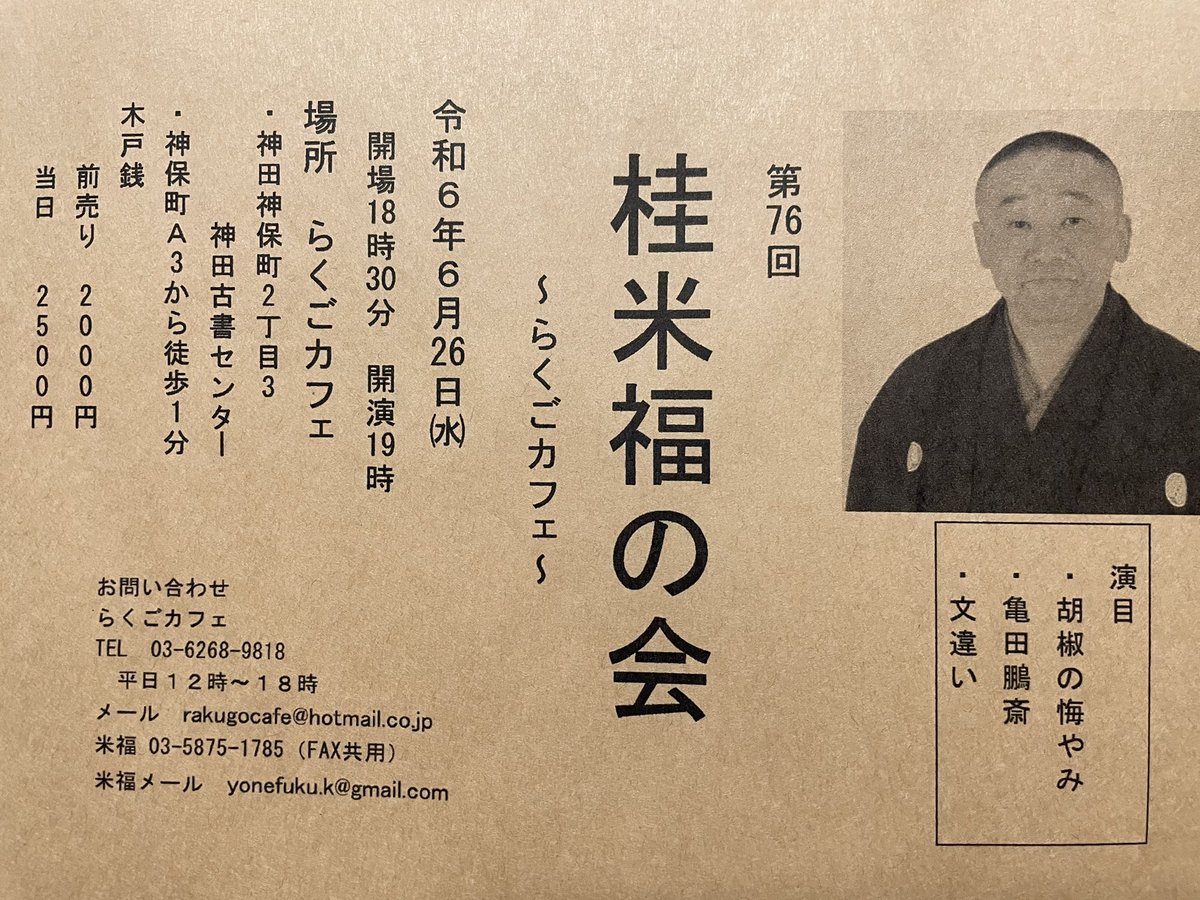 演目
・胡椒の悔やみ
・亀田鵬斎
・文違い
第76回
桂米福の会
～らくごカフェ～
令和６年６月26日㈬
開場18時30分　開演19時
場所　らくごカフェ
・神田神保町２丁目３
神田古書センター
・神保町Ａ３から徒歩１分
木戸銭
前売り　２０００円
当日　２５００円
お問い合わせ
らくごカフェ
TEL　03-6268-9818
平日１２時～１８時
メール　rakugocafe@hotmail.co.jp
米福 03-5875-1785（FAX共用）
米福メール　yonefuku.k@gmail.com